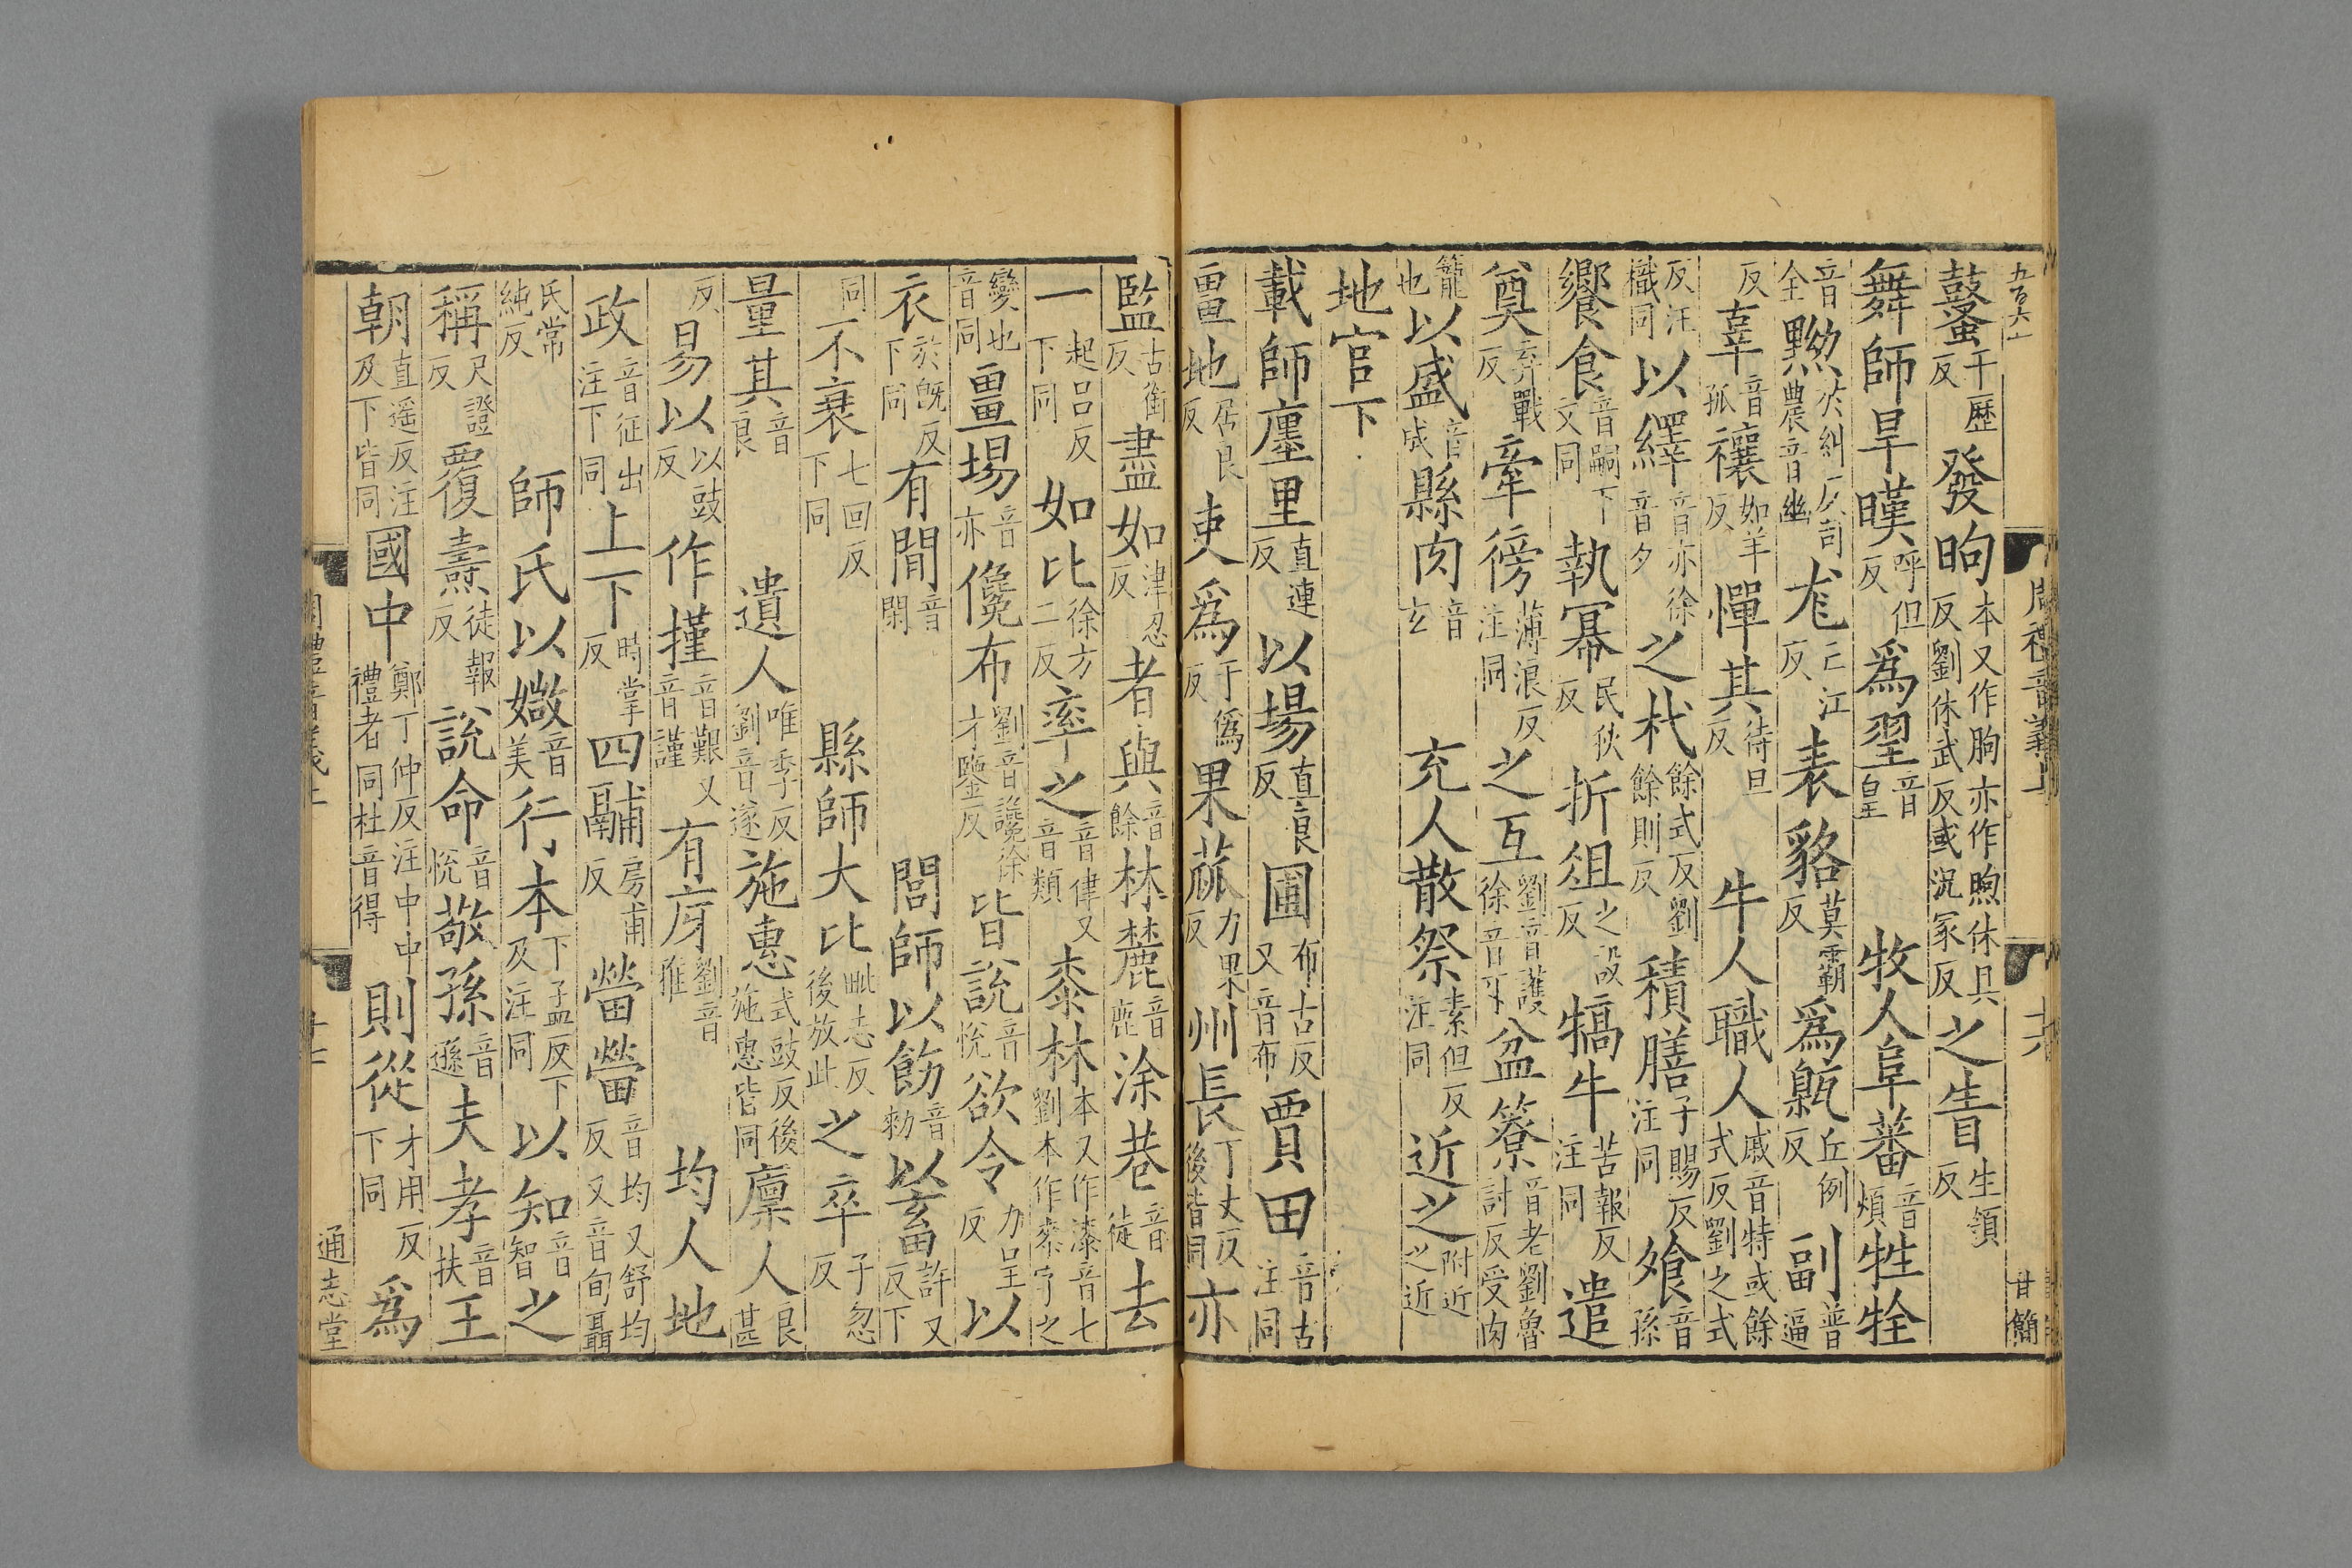 鼜千歷反發昫本又作朐亦作煦休具反劉休武反或況冢反之眚生領反
舞師旱暵呼但反為翌音皇牧人阜蕃音煩牲牷
音全黝於糾反司農音幽尨亡江反表貉莫霸反為甈丘例反副普逼
反辜音孤禳如羊反憚其待旦反牛人職人戚音特或餘式反劉之式
反注樴同以繹音亦徐音夕之杙餘式反劉餘則反積膳子賜反注同飧音孫
饗食音嗣下文同執冪民狄反折俎之設反犒牛苦報反注同遣
奠弃戰反牽徬薄浪反注同之互劉音護徐音下盆簝音老劉魯討反受肉
籠也以盛音成縣肉音玄充人散祭素但反注同近之附近之近
地官下
載師廛里直連反以場直良反圃布古反又音布賈田音古注同
畺地居良反吏為于偽反果蓏力果反州長丁丈反後皆同亦
監古銜反盡如津忍反者與音餘林麓音鹿涂巷音徒去
一起呂反下同如比徐方二反率之音律又音類桼林本又作漆音七劉本作桼字之
變也音同畺場音亦儳布劉音讒徐才鑒反皆說音悅欲令力呈反以
衣於既反下同有閒音閑閭師以飭音勑以畜許又反下
同不衰七回反下同縣師大比毗志反後放此之卒子忽反
量其音良遺人唯季反劉音遂施惠式豉反後施惠皆同廩人良甚
反易以以豉反作墐音艱又音謹有疨劉音雅均人地
政音征出注下同上下時掌反四鬴房甫反營營音均又舒均反又音旬聶
氏常純反師氏以媺音美行本下孟反下及注同以知音智之
稱尺證反覆燾徒報反說命音悅敬孫音遜夫孝音扶王
朝直遥反注及下皆同國中鄭丁仲反注中中禮者同杜音得則從才用反下同為
周禮音義上
十六
甘簡
周禮音義上
十七
通志堂